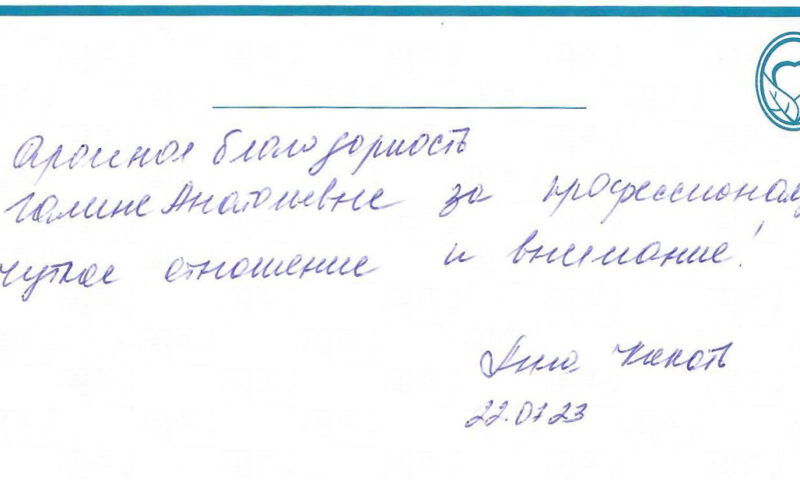 Огромная благодарность
Галине Анатольевне за профессионал
чуткое отношение и внимание!
22.07.23